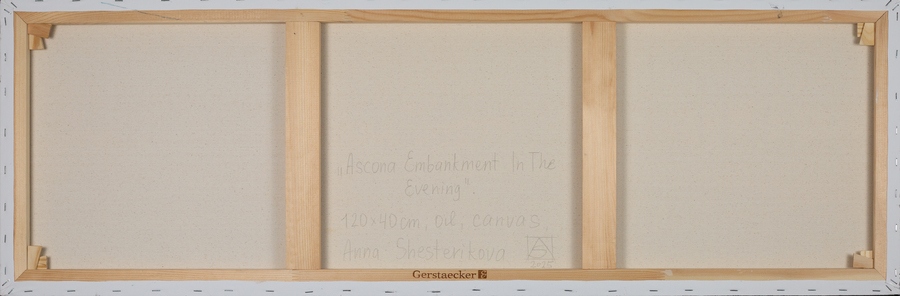 „Ascona Embankment In The
Evening".
120×40cm, oil, canvas,
Anna Shesterikova
Gerstaecker